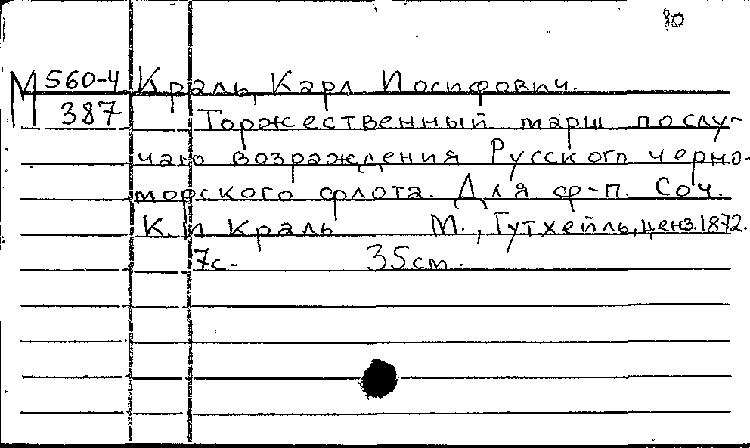 80
М 560-4 Краль, Карл Иосифович.
387 Торжественный марш по слу-
чаю возраждения Русского черно-
морского флота. Для ф-п. Соч.
К. И Краль М., Гутхейль, ценз. 1872.
7с. 35см.